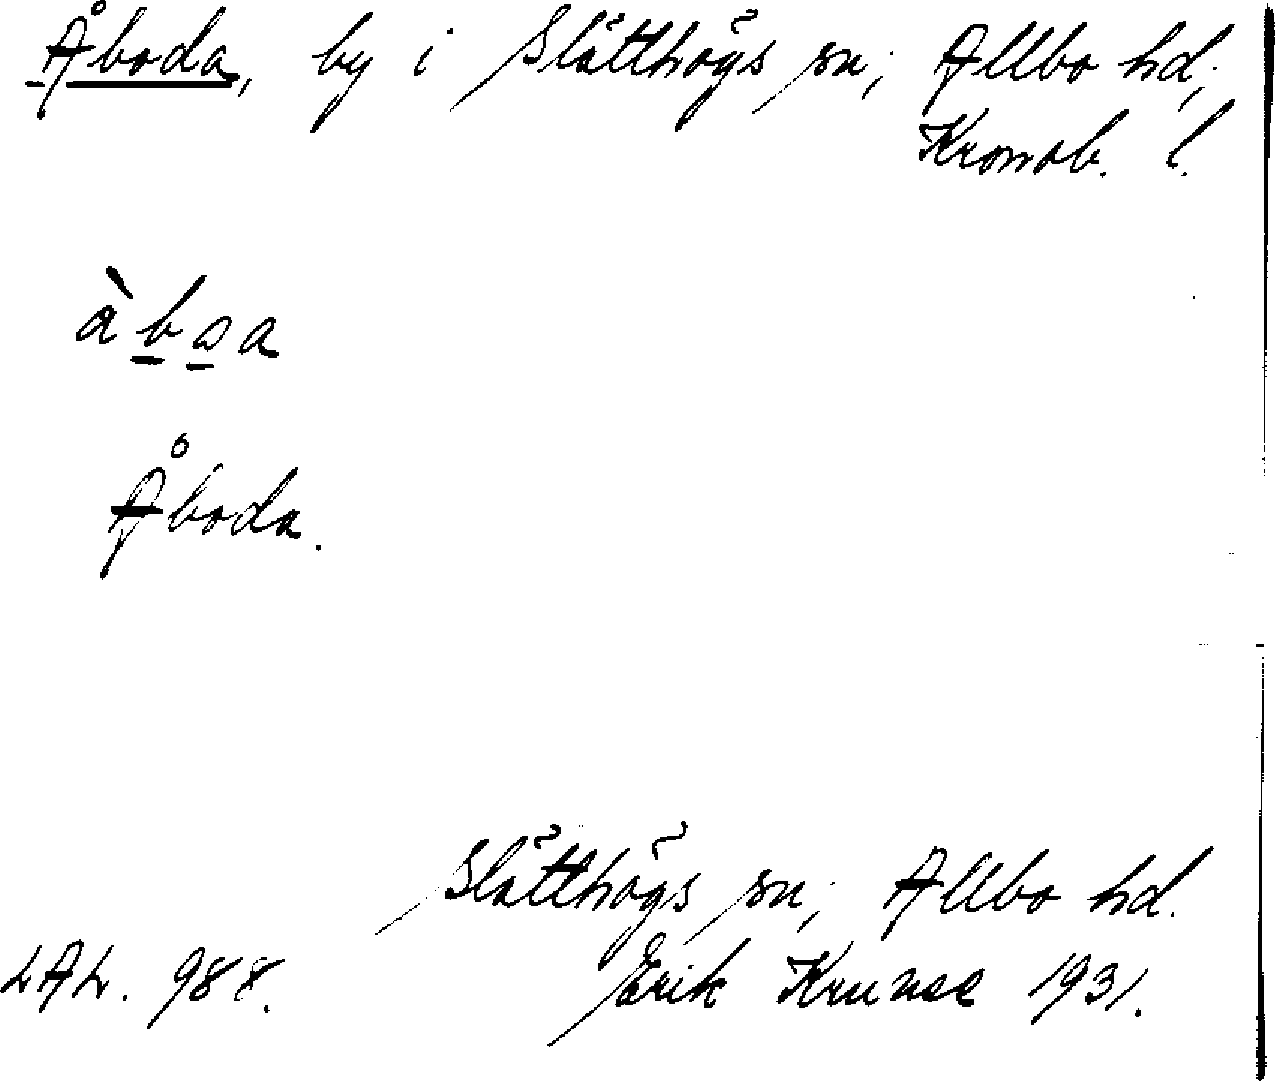 Åboda, by i Slätthögs sn; Allbo hd;
Kronob. l.
Åboda.
Slätthögs sn; Allbo hd.
LAL. 988. Erik Kruuse 1931.